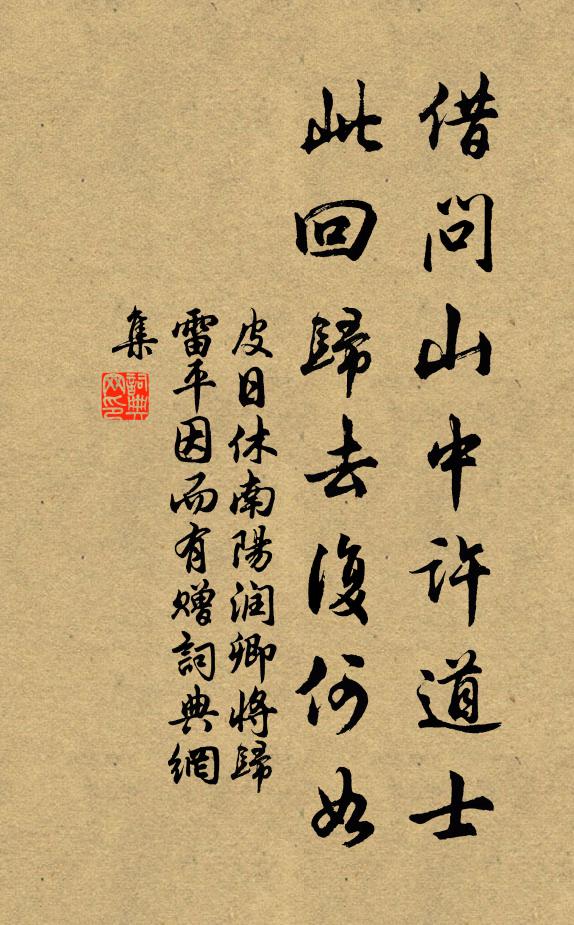 借問山中許道士
此回歸去復何如
皮日休南陽潤卿將歸
雷平因而有贈詞典網
集
詞典網印